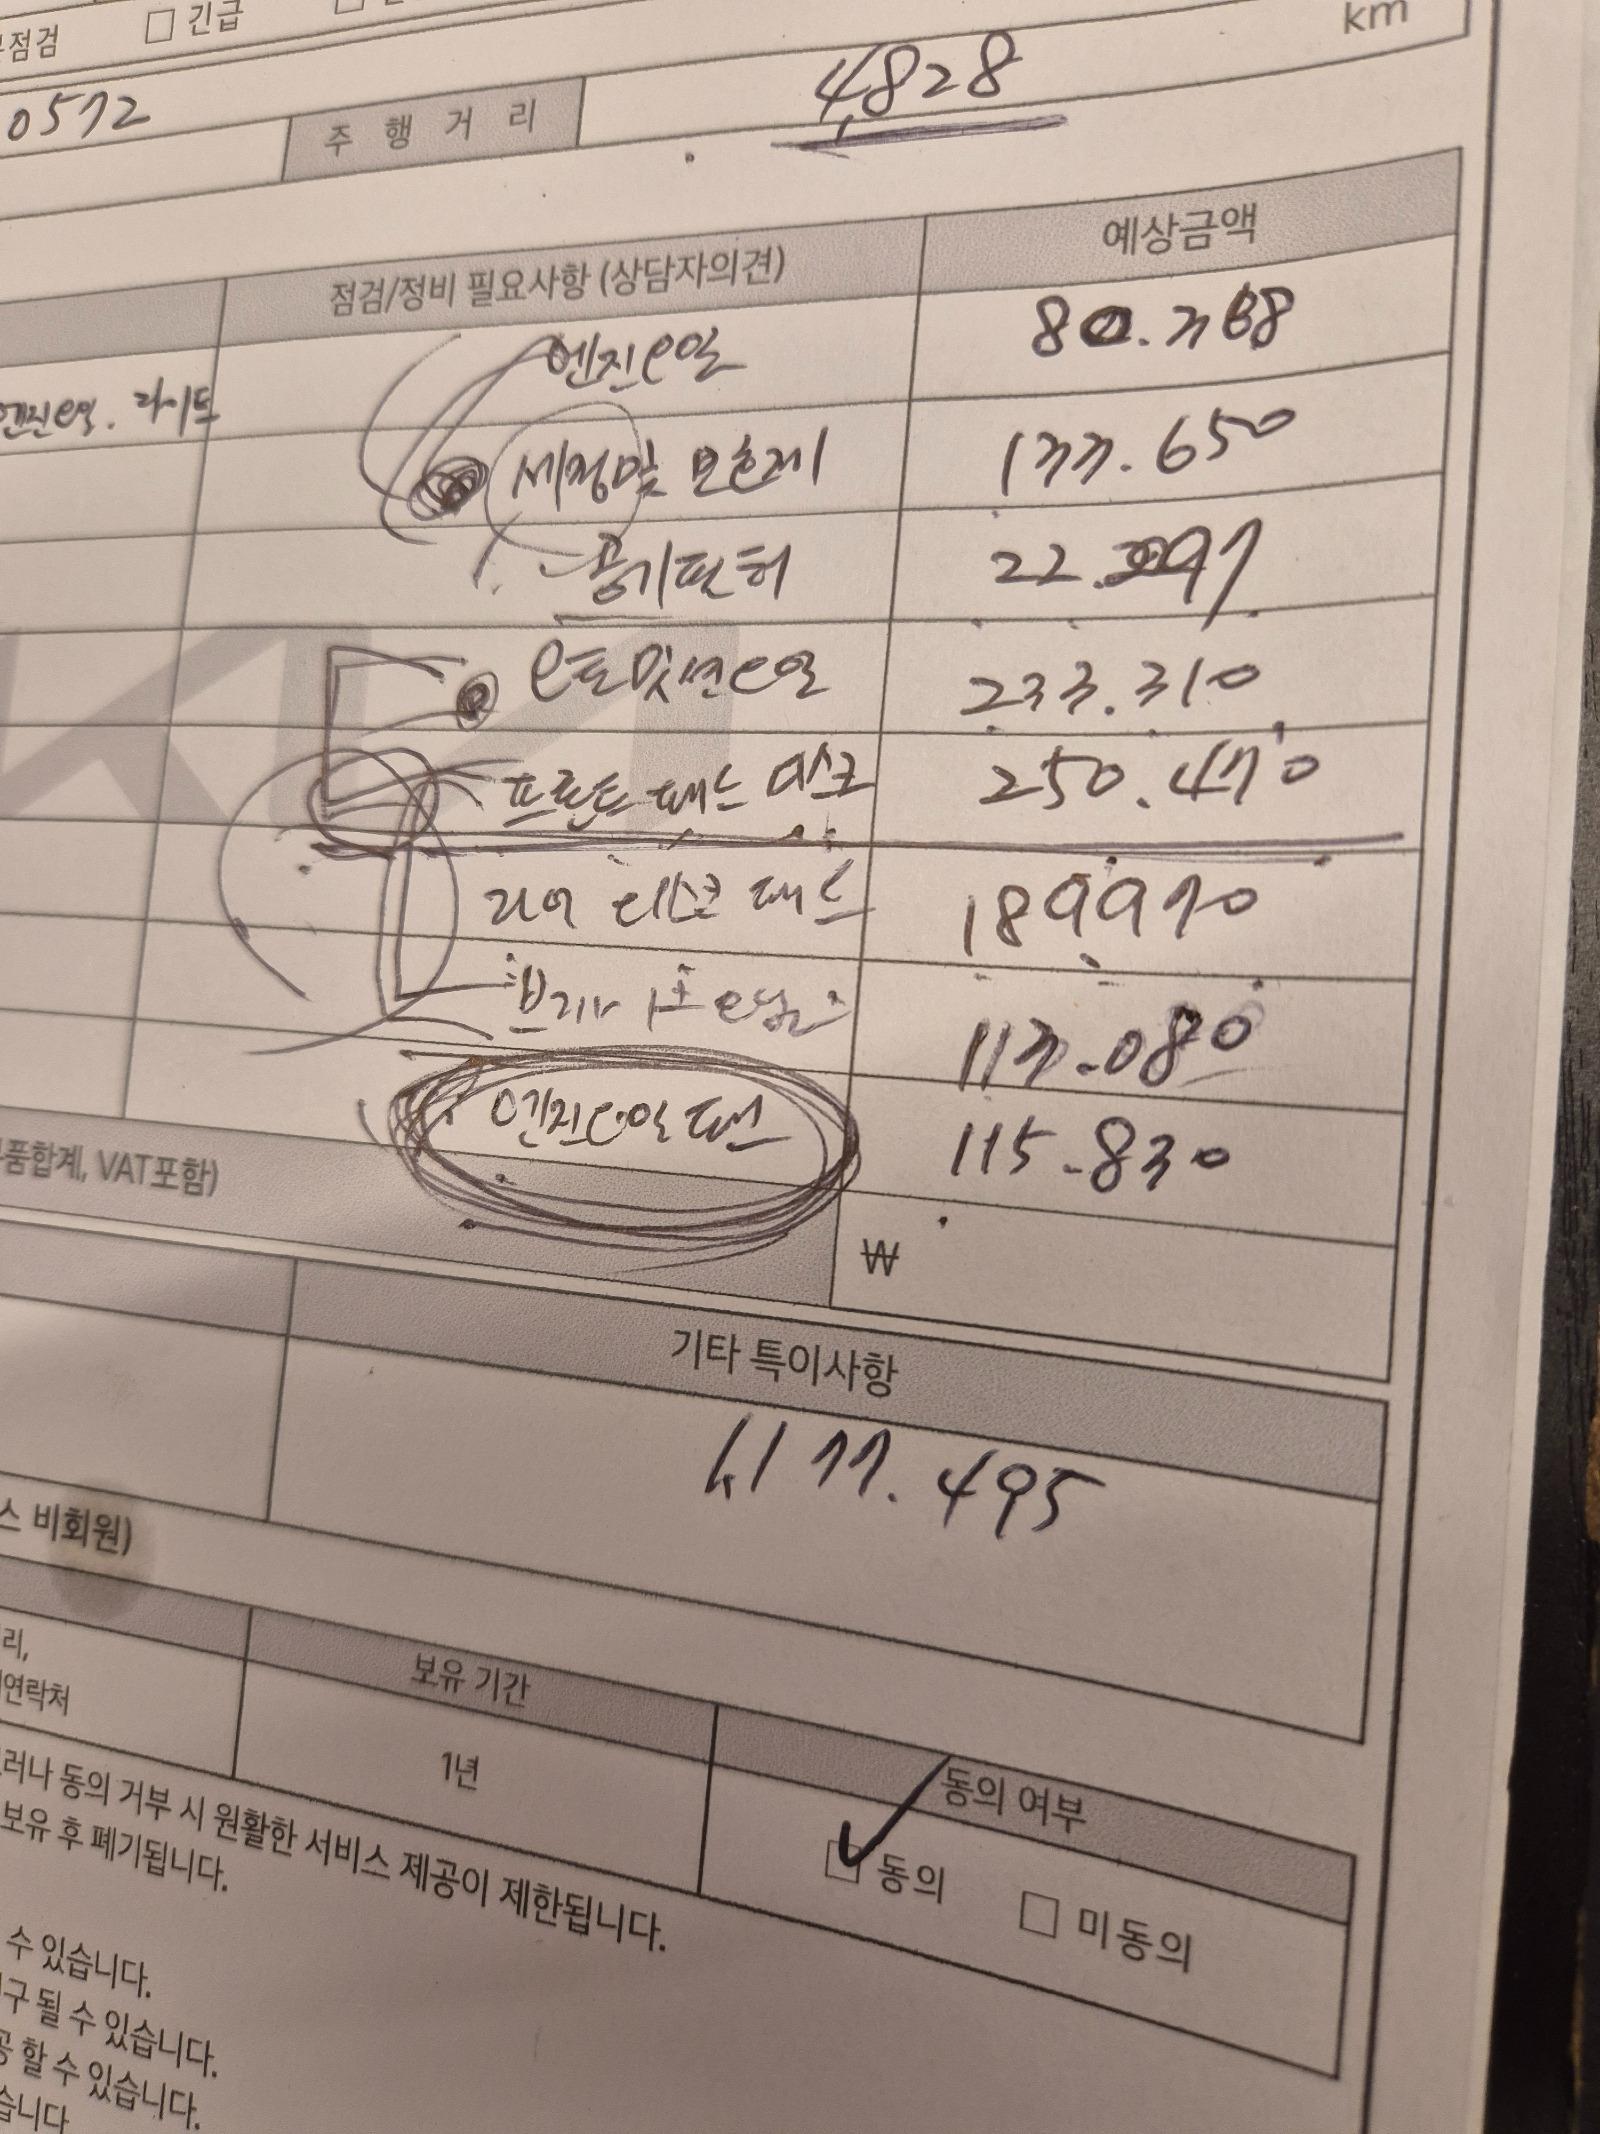 점검 □ 긴급
km
0572 주 행 거 리 4,828
점검/정비 필요사항 (상담자의견) 예상금액
엔진오일
엔진오일. 라이트
세정및 보호제 133.650
공기필터
233.310
프론트 패드 디스크 250.470
리어 디스크 패드 189970
113.080
엔진오일 팬 115.830
품합계, VAT포함) ₩
기타 특이사항
1,177.495
스 비회원)
리,
연락처
보유 기간
1년
동의 여부
□ 동의 □ 미동의
러나 동의 거부 시 원활한 서비스 제공이 제한됩니다.
보유 후 폐기됩니다.
수 있습니다.
구 될 수 있습니다.
공 할 수 있습니다.
습니다